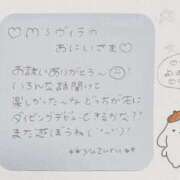 ♡M'sヴィラの
おにいさま♡
お誘いありがとう〜
いろんな話聞けて
楽しかった〜な どっちが先に
ダイビングデビューできるかな??
また遊ぼうね(